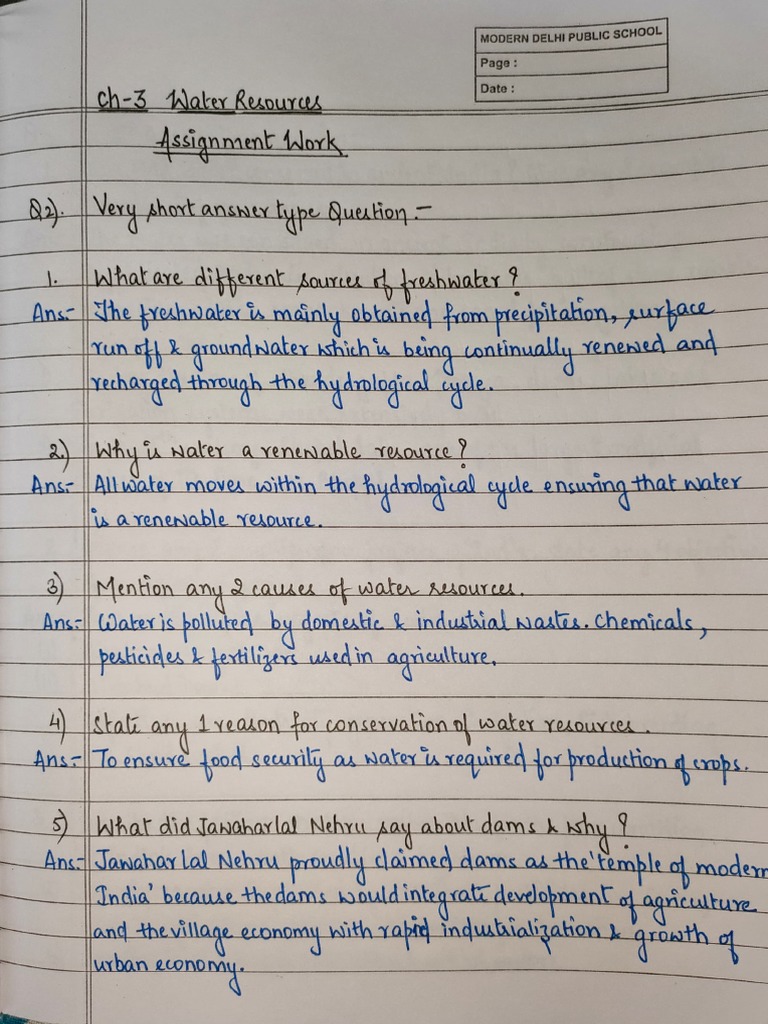 MODERN DELHI PUBLIC SCHOOL
Page :
Date :
Ch-3 Water Resources
Assignment Work
Q2). Very short answer type Question :-
1. What are different sources of freshwater ?
Ans:- The freshwater is mainly obtained from precipitation, surface
run off & groundwater which is being continually renewed and
recharged through the hydrological cycle.
2.) Why is water a renewable resource ?
Ans:- All water moves within the hydrological cycle ensuring that water
is a renewable resource.
3) Mention any 2 causes of water resources.
Ans:- Water is polluted by domestic & industrial wastes. Chemicals,
pesticides & fertilizers used in agriculture.
4) State any 1 reason for conservation of water resources.
Ans:- To ensure food security as water is required for production of crops.
5) What did Jawaharlal Nehru say about dams & why ?
Ans:- Jawaharlal Nehru proudly claimed dams as the 'temple of modern
India' because the dams would integrate development of agriculture
and the village economy with rapid industrialization & growth of
urban economy.